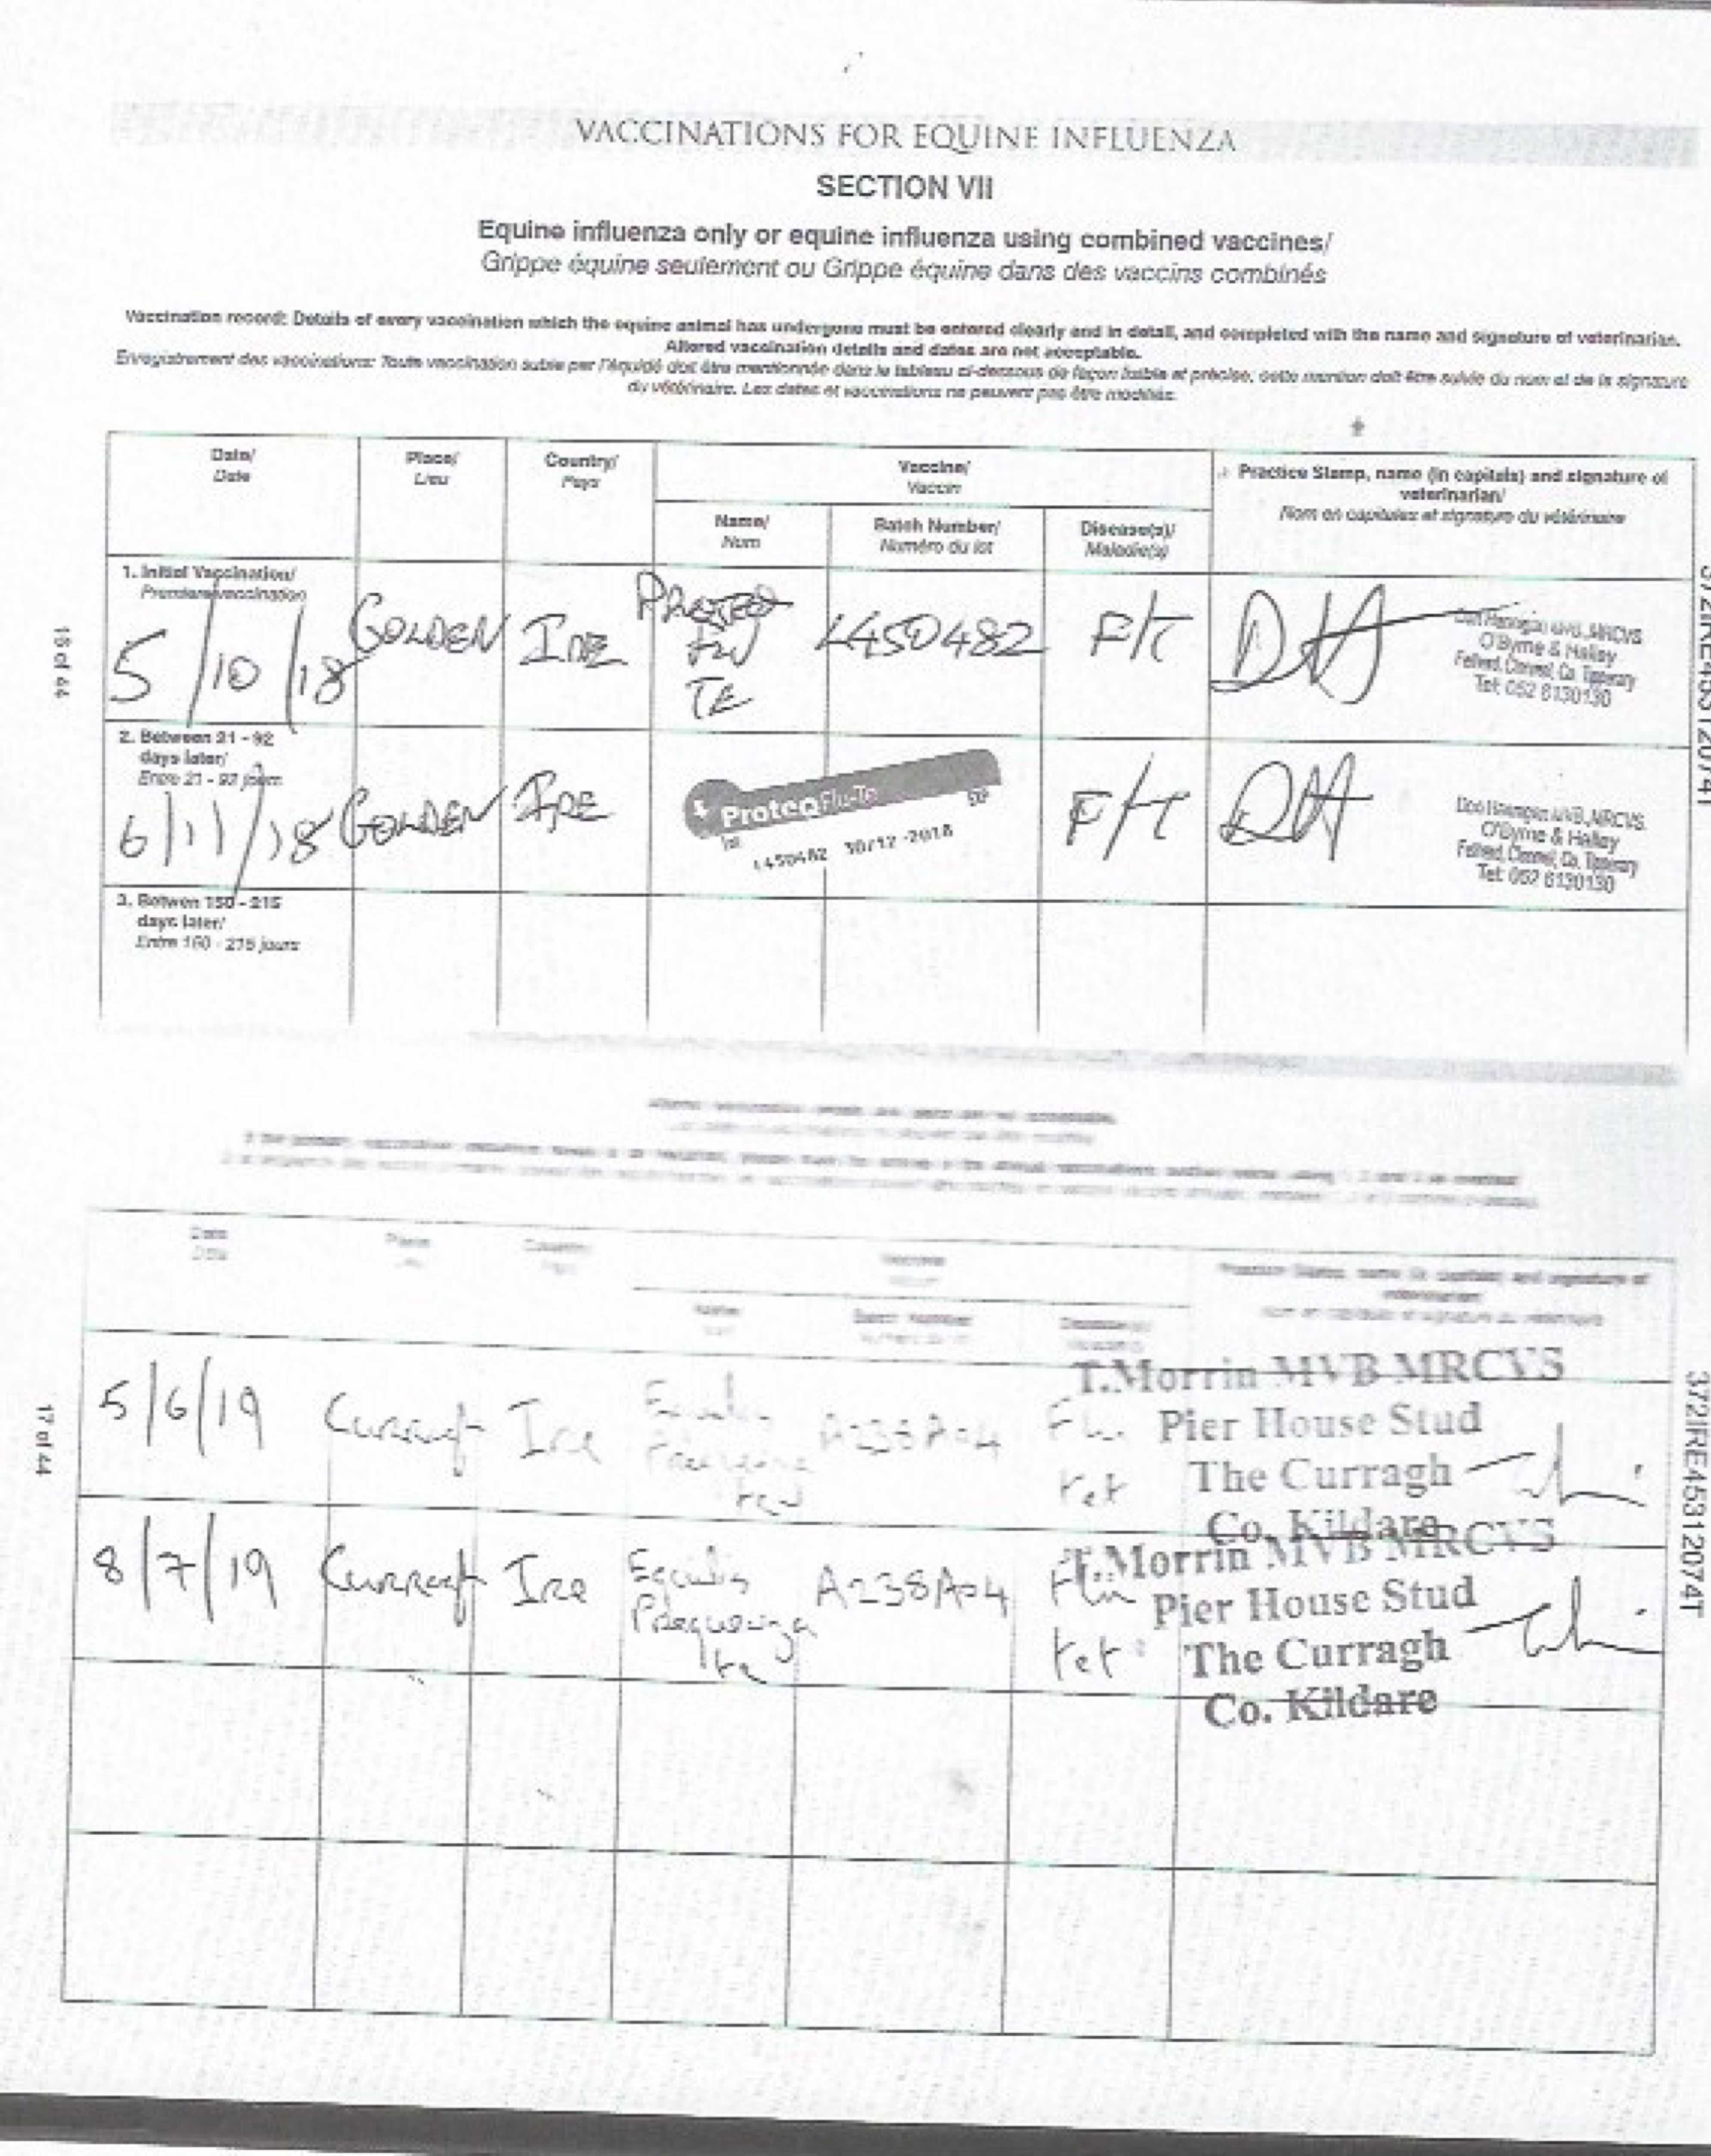 VACCINATIONS FOR EQUINE INFLUENZA
SECTION VII
Equine influenza only or equine influenza using combined vaccines/
Grippe équine seulement ou Grippe équine dans des vaccins combinés
Vaccination record: Details of every vaccination which the equine animal has undergone must be entered clearly and in detail, and completed with the name and signature of veterinarian.
Altered vaccination details and dates are not acceptable.
Enregistrement des vaccinations: Toute vaccination subie par l'équidé doit être mentionnée dans le tableau ci-dessous de façon lisible et précise, cette mention doit être suivie du nom et de la signature
du vétérinaire. Les dates et vaccinations ne peuvent pas être modifiés.
Date/ Place/ Country/ Vaccine/ Practice Stamp, name (in capitals) and signature of
Date Lieu Pays Vaccin veterinarian/
Name/ Batch Number/ Disease(s)/ Nom en capitules et signature du vétérinaire
Nom Numéro du lot Maladie(s)
1. Initial Vaccination/
Premiere vaccination
5/10/18 GOLDEN IRE L450482 F/T
TE
O'Byrne & Halley
Fethard, Clonmel, Co. Tipperary
Tel: 052 6130130
2. Between 21 - 92
days later/
Entre 21 - 92 jours
6/11/18 GOLDEN IRE ProteqFlu-Te F/T
L450482 30/12-2018
MVB, MRCVS
O'Byrne & Halley
Fethard, Clonmel, Co. Tipperary
Tel: 052 6130130
3. Betwen 150 - 215
days later/
Entre 150 - 215 jours
15 of 44
372IRE45312074T
5/6/19 Curragh Ire Equilis A238A04 Flu
Prequenza tet
T.Morrin MVB MRCVS
Pier House Stud
The Curragh
Co. Kildare
8/7/19 Curragh Ire Equilis A238A04 Flu
Prequenza tet
te
T.Morrin MVB MRCVS
Pier House Stud
The Curragh
Co. Kildare
17 of 44
372IRE45312074T